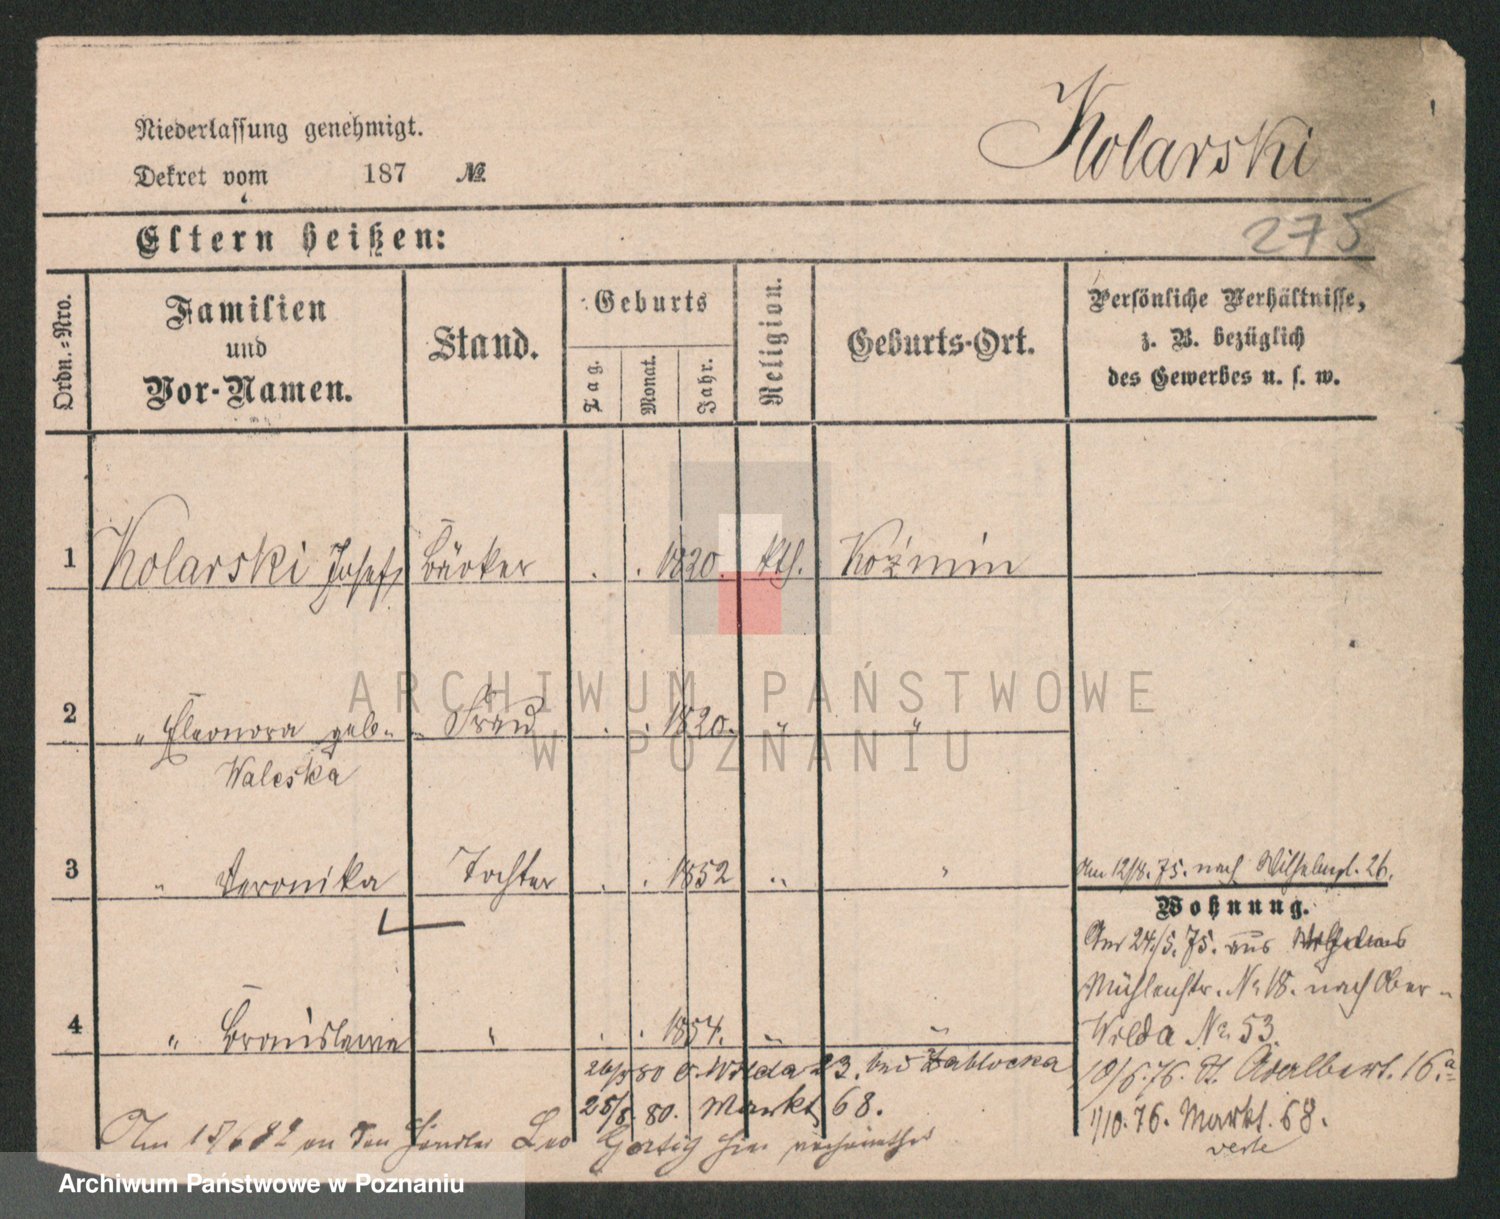 Niederlassung genehmigt.
Dekret vom 187 №
Kolarski
275
Eltern heißen:
Ordn.-Nro.
Familien
und
Vor-Namen.
Stand.
Geburts
Tag.
Monat.
Jahr.
Religion.
Geburts-Ort.
Persönliche Verhältnisse,
z. B. bezüglich
des Gewerbes u. s. w.
1 Kolarski Josef Bäcker . . 1820. kth. Koźmin
2 " Eleonora geb. Frau . . 1820. " "
Waleska
3 " Veronika Tochter . . 1852 " "
Am 12/8. 75. nach Wilhelmpl. 26.
Wohnung.
Am 24./5. 75. aus
Mühlenstr. No 18. nach Ober-
Wilda No 53.
4 " Bronislawa " . . 1854. " "
10/6. 76. St. Adalbert. 16a
1/10. 76. Markt. 68.
26/3 80 O. Wilda 23. bei Zablocka
25/8. 80. Markt 68.
Am 15/6 82 an den Händler Leo hier
ARCHIWUM PAŃSTWOWE
W POZNANIU
Archiwum Państwowe w Poznaniu